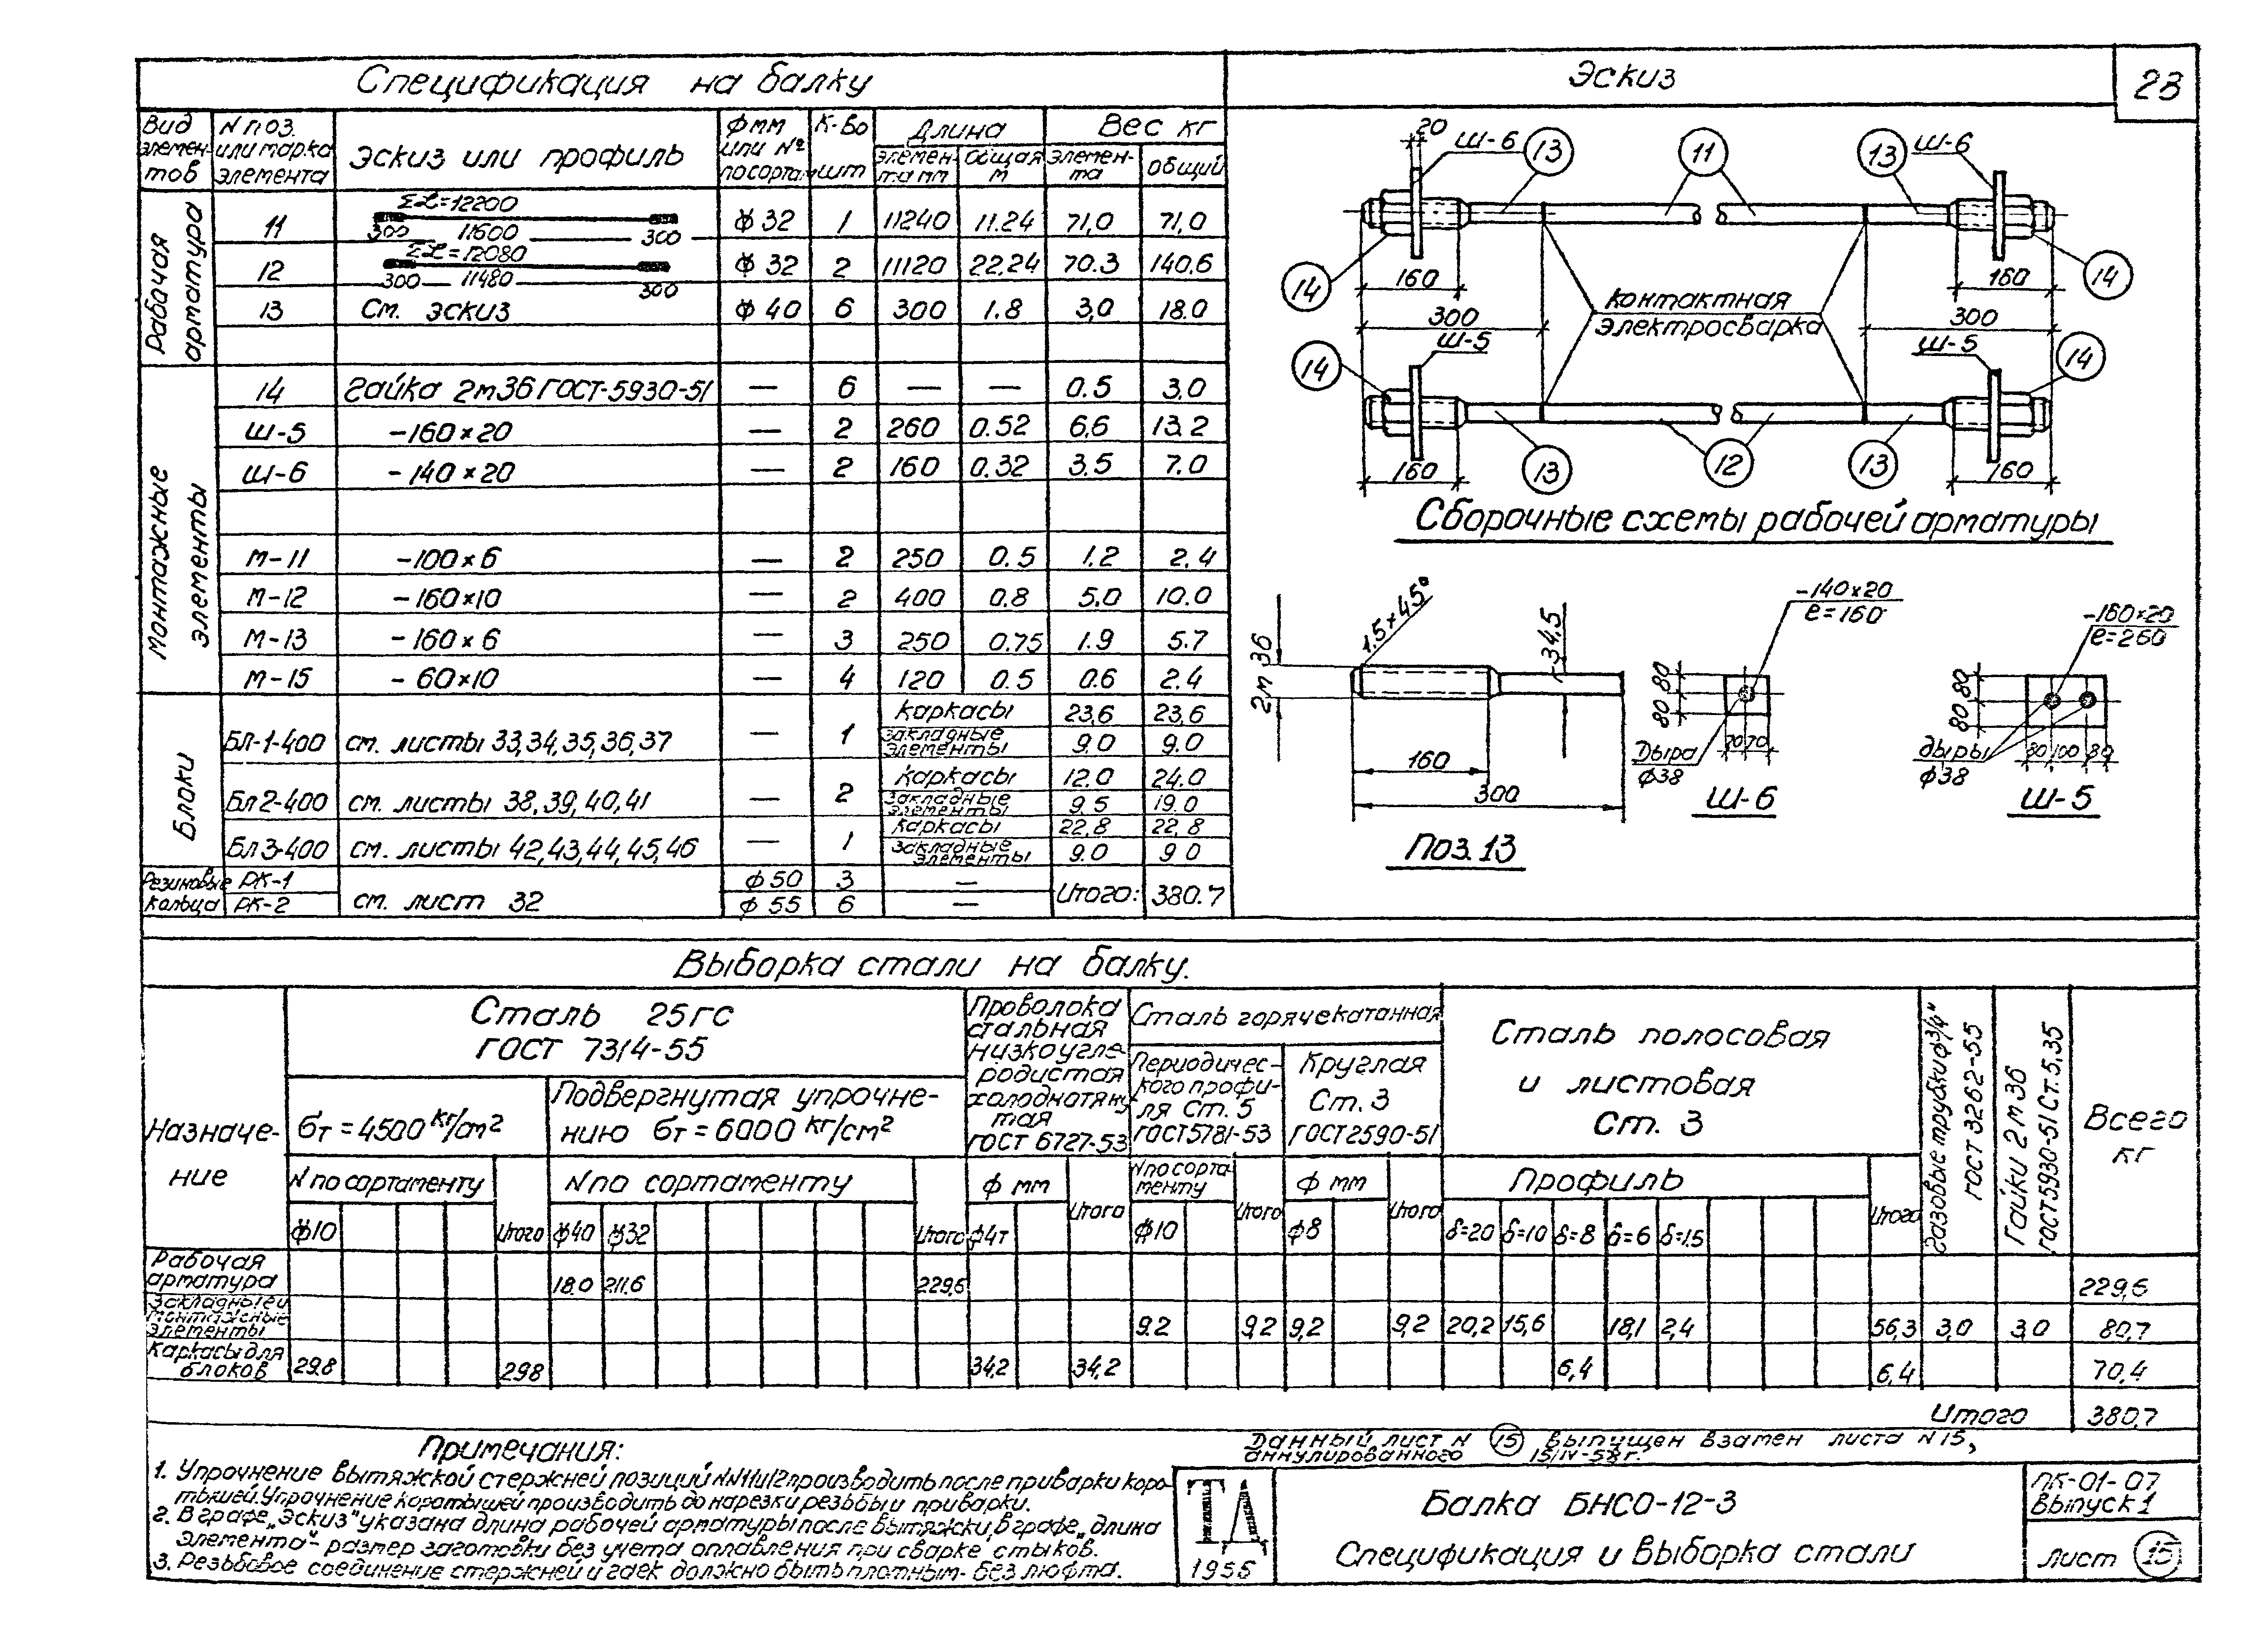 Спецификация на балку
Эскиз
23
Вид элементов
N поз. или марка элемента
Эскиз или профиль
Ф мм или № по сортам.
К-во шт
Длина
элемента мм
Общая м
Вес кг
элемента
общий
Рабочая арматура
11 ΣL=12200 300 11600 300 ф 32 1 11240 11.24 71,0 71,0
12 ΣL=12080 300 11480 300 ф 32 2 11120 22.24 70.3 140.6
13 См. эскиз ф 40 6 300 1.8 3,0 18.0
Монтажные элементы
14 Гайка 2м36 ГОСТ-5930-51 — 6 — — 0.5 3.0
Ш-5 -160×20 — 2 260 0.52 6.6 13.2
Ш-6 -140×20 — 2 160 0.32 3.5 7.0
М-11 -100×6 — 2 250 0.5 1.2 2.4
М-12 -160×10 — 2 400 0.8 5.0 10.0
М-13 -160×6 — 3 250 0.75 1.9 5.7
М-15 -60×10 — 4 120 0.5 0.6 2.4
Блоки
БЛ-1-400 см. листы 33,34,35,36,37 — 1 каркасы 23,6 23,6
закладные элементы 9.0 9.0
Бл 2-400 см. листы 38,39,40,41 — 2 каркасы 12.0 24.0
закладные элементы 9.5 19.0
Бл 3-400 см. листы 42,43,44,45,46 — 1 каркасы 22.8 22.8
закладные элементы 9.0 9 0
Резиновые кольца
РК-1 ф 50 3 —
РК-2 см. лист 32 ф 55 6 —
Итого: 380.7
20 Ш-6 13 11 13 Ш-6
14 160 160 14
контактная
электросварка
300 300
Ш-5 Ш-5
14 14
13 12 13
160 160
Сборочные схемы рабочей арматуры
2м 36
1.5×45°
34,5
160
300
Поз. 13
-140×20
ℓ=160
80 80
70 70
Дыра
ф38
Ш-6
-160×20
ℓ=260
80 80
80 100 80
дыры
ф38
Ш-5
Выборка стали на балку.
Назначение
Сталь 25гс
ГОСТ 7314-55
бт = 4500 кг/см²
Подвергнутая упрочнению бт = 6000 кг/см²
Проволока
стальная
низкоугле-
родистая
холоднотяну
тая
ГОСТ 6727-53
Сталь горячекатанная
Периодичес-
кого профи-
ля Ст. 5
ГОСТ 5781-53
Круглая
Ст. 3
ГОСТ 2590-51
Сталь полосовая
и листовая
Ст. 3
Газовые трубки ф3/4" ГОСТ 3262-55
Гайки 2м36 ГОСТ 5930-51 Ст.5,35
Всего кг
N по сортаменту
N по сортаменту
ф мм
Итого
N по сортаменту
Итого
ф мм
Итого
Профиль
Итого
ф10 Итого ф40 ф32 Итого ф4т ф10 ф8 δ=20 δ=10 δ=8 δ=6 δ=1.5
Рабочая арматура 18.0 211.6 229,6 229,6
Закладные и монтажные элементы 9.2 9,2 9,2 9,2 20,2 15,6 18,1 2,4 56,3 3,0 3,0 80,7
Каркасы для блоков 29.8 29.8 34,2 34,2 6,4 6,4 70,4
Итого 380,7
Примечания:
1. Упрочнение вытяжкой стержней позиций NN11и12производить после приварки коро-
тышей. Упрочнение коротышей производить до нарезки резьбы и приварки.
2. В графе „Эскиз" указана длина рабочей арматуры после вытяжки, в графе „длина
элемента" - размер заготовки без учета оплавления при сварке стыков.
3. Резьбовое соединение стержней и гаек должно быть плотным - без люфта.
Данный лист N 15 выпущен взамен листа N 15,
аннулированного 15/IV-58г.
ТД
1955
Балка БНСО-12-3
Спецификация и выборка стали
ПК-01-07
Выпуск 1
лист 15